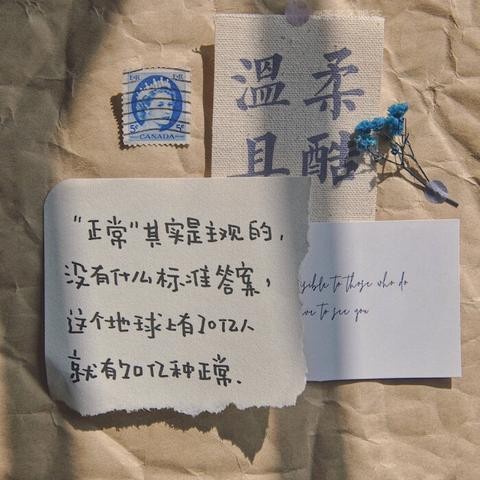 溫柔
且酷
E R E R
5¢ 5¢
CANADA
“正常”其实是主观的,
没有什么标准答案,
这个地球上有70亿人
就有70亿种正常.
to those who do
to see you